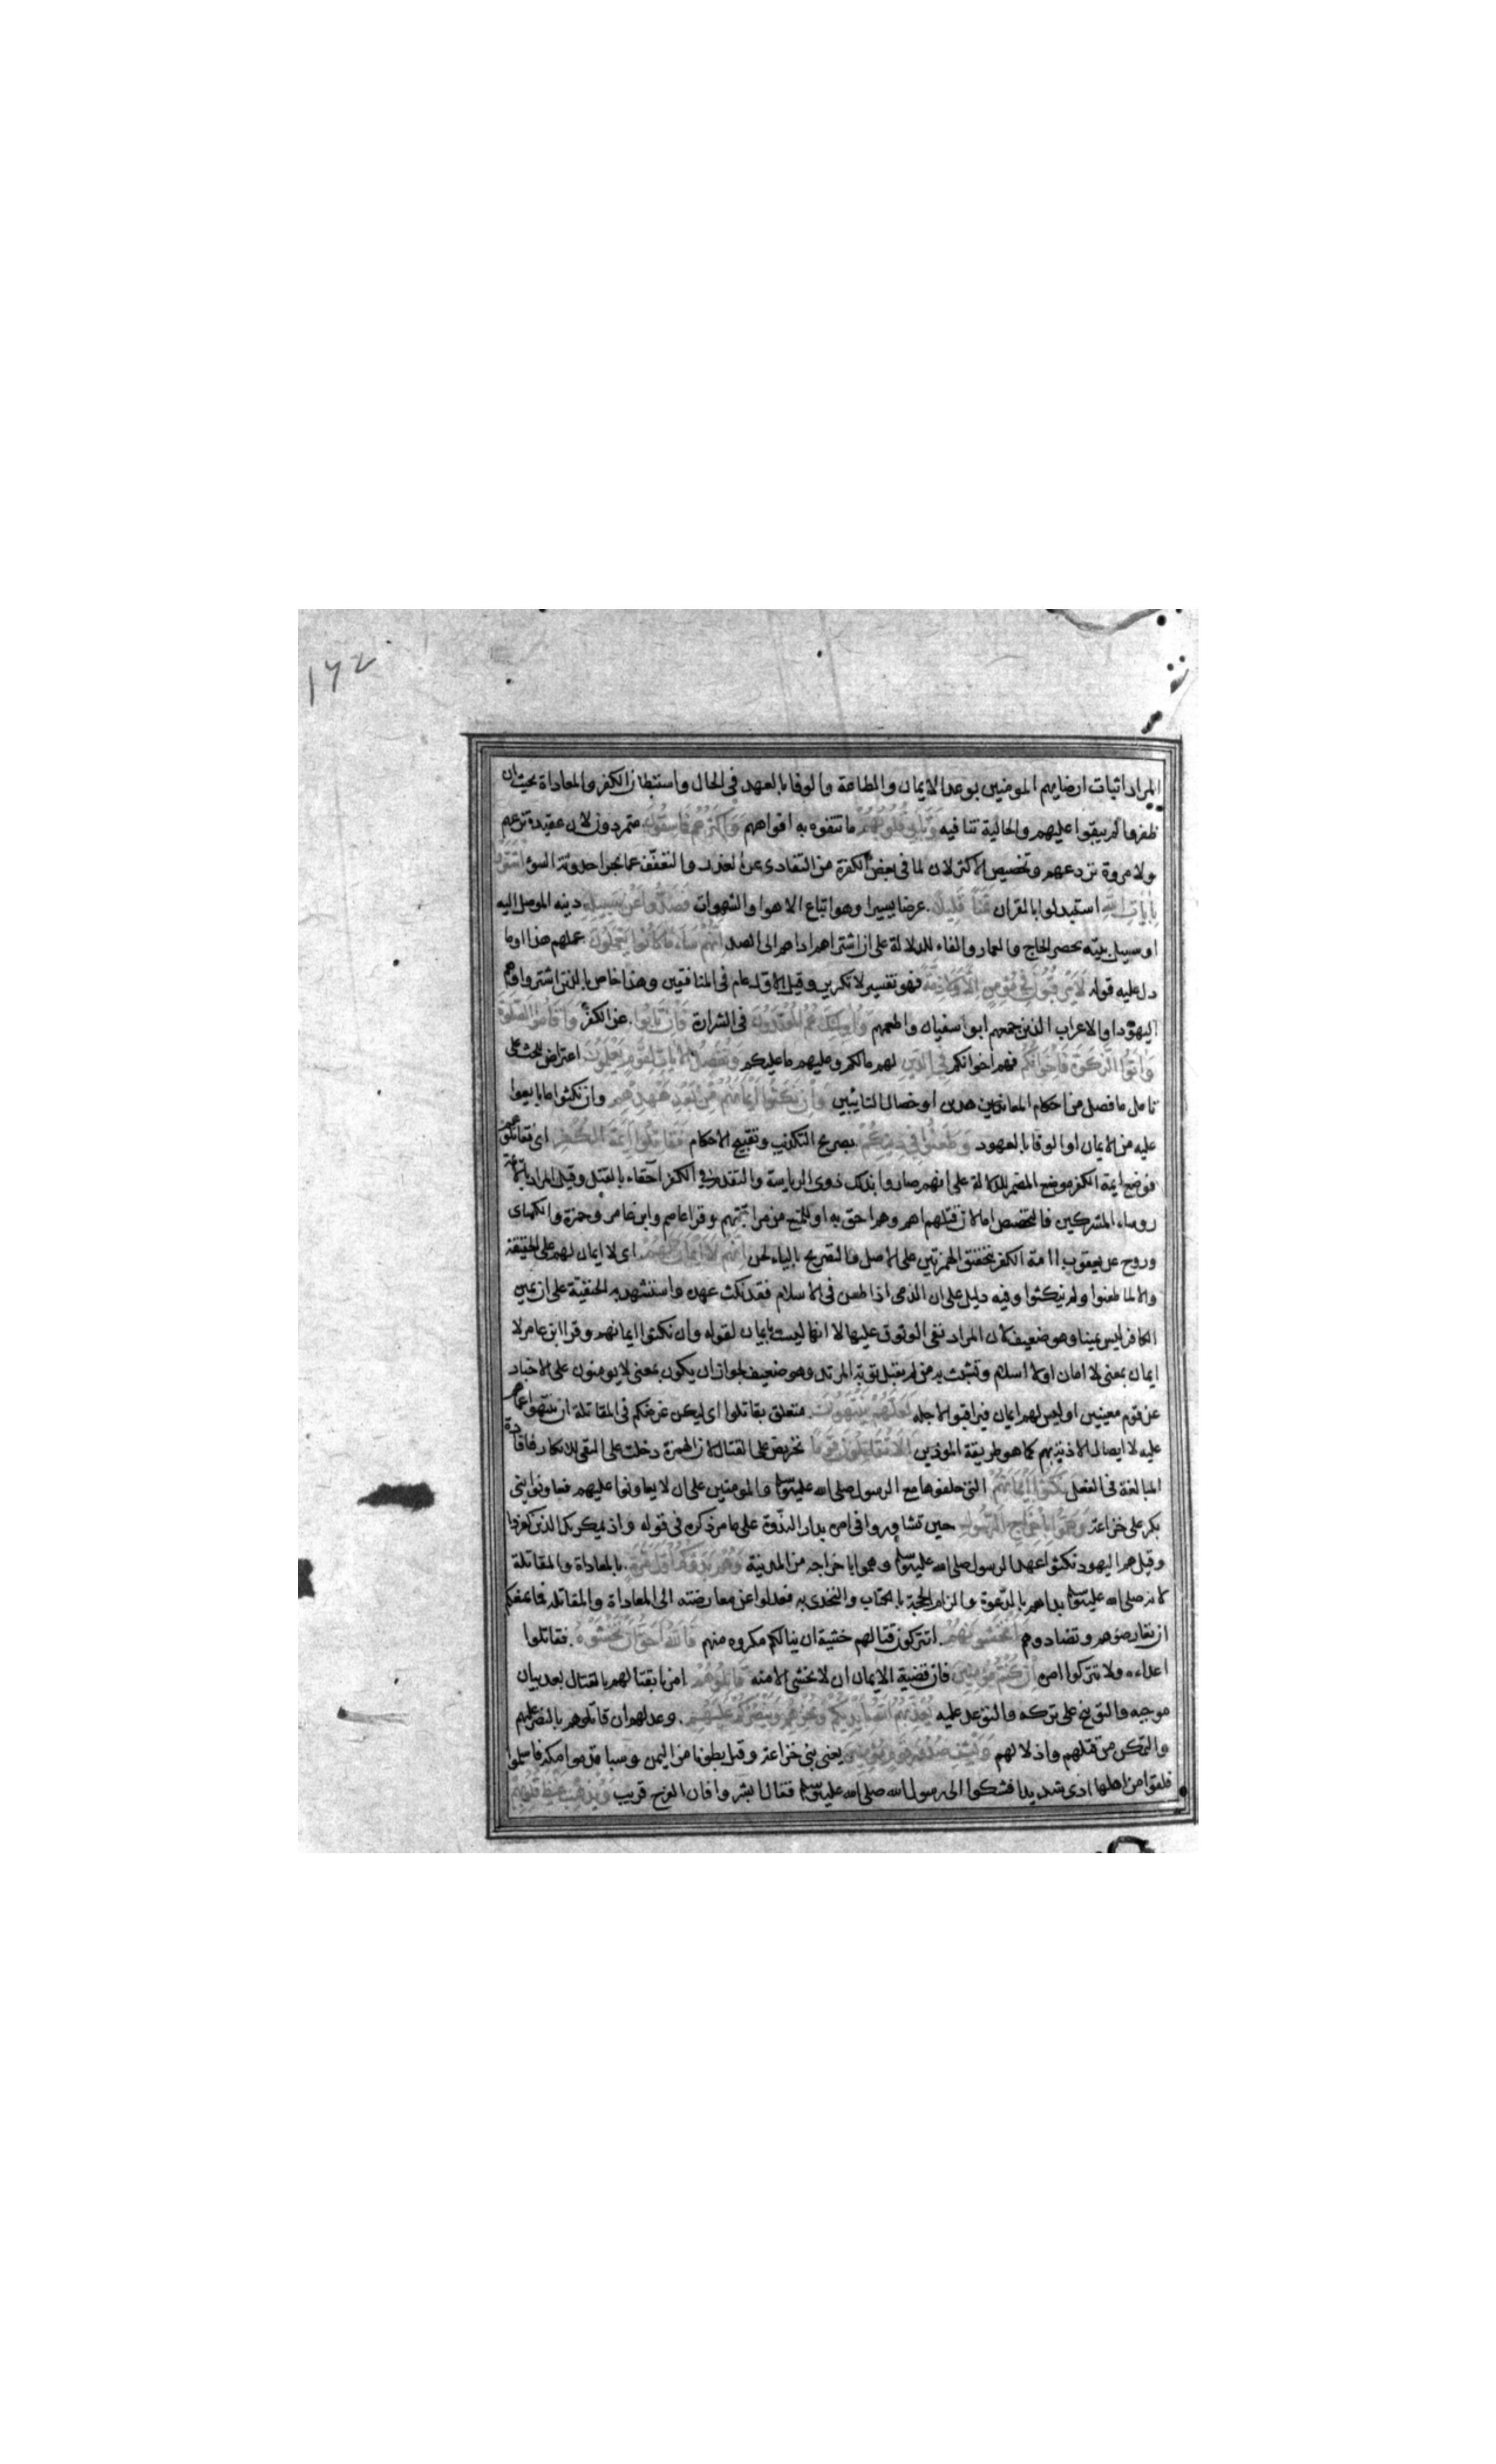 ١٧٢
المراد اثبات ارضايهم المومنين بوعد الايمان والطاعة والوفا بالعهد فى الحال واستبطان الكفر والمعاداة بحيث ان
ظفروا لم يبقوا عليهم والحالية تنافيه وَتَأْبَى قُلُوبُهُمْ ما تتفوه به افواههم وَأَكْثَرُهُمْ فَاسِقُونَ متمردون لان عقيدة تزعهم
ولا مروة تردعهم وتخصيص الاكثر لان لما فى بعض الكفرة من التفادى عن الغدر والتعفف عما يجر احدوثة السوء اشْتَرَوْا
بِآيَاتِ اللهِ استبدلوا بالقران ثَمَنًا قَلِيلًا عرضا يسيرا وهو اتباع الاهوا والشهوات فَصَدُّوا عَنْ سَبِيلِهِ دينه الموصل اليه
او سبيل بيته بحصر الحاج والعمار والفاء للدلالة على ان اشتراهم اداهم الى الصد إِنَّهُمْ سَاءَ مَا كَانُوا يَعْمَلُونَ عملهم هذا او ما
دل عليه قوله لَا يَرْقُبُونَ فِي مُؤْمِنٍ إِلًّا وَلَا ذِمَّةً فهو تفسير لا تكرير وقيل الاول عام فى المنافقين وهذا خاص بالذين اشتروا وهم
اليهود او الاعراب الذين جمعهم ابو سفيان واطعمهم وَأُولَئِكَ هُمُ الْمُعْتَدُونَ فى الشرارة فَإِنْ تَابُوا عن الكفر وَأَقَامُوا الصَّلَوةَ
وَآتَوُا الزَّكَوةَ فَإِخْوَانُكُمْ فهم اخوانكم فِي الدِّينِ لهم مالكم وعليهم ما عليكم وَنُفَصِّلُ الْآيَاتِ لِقَوْمٍ يَعْلَمُونَ اعتراض للحث على
تامل ما فصل من احكام المعاهدين او خصال التائبين وَإِنْ نَكَثُوا أَيْمَانَهُمْ مِنْ بَعْدِ عَهْدِهِمْ وان نكثوا ما بايعوا
عليه من الايمان او الوفا بالعهود وَطَعَنُوا فِي دِينِكُمْ بصريح التكذيب وتقبيح الاحكام فَقَاتِلُوا أَئِمَّةَ الْكُفْرِ اى فقاتلوهم
فوضع ايمة الكفر موضع المضمر للدلالة على انهم صاروا بذلك ذوى الرياسة والتقدم فى الكفر احقاء بالقتل وقيل المراد بالائمة
روساء المشركين فالتخصيص اما لان قتلهم اهم وهم احق به او للمنع من مراقبتهم وقرا عاصم وابن عامر وحمزة والكساى
وروح عن يعقوب اامة الكفر بتحقيق الهمزتين على الاصل والتصريح بالياء لحن إِنَّهُمْ لَا أَيْمَانَ لَهُمْ اى لا ايمان لهم على الحقيقة
والا لما طعنوا ولم ينكثوا وفيه دليل على ان الذمى اذا طعن فى الاسلام فقد نكث عهده واستشهد به الحنفية على ان يمين
الكافر ليس يمينا وهو ضعيف لان المراد نفى الوثوق عليها لا انها ليست بايمان لقوله وان نكثوا ايمانهم وقرا ابن عامر لا
ايمان بمعنى لا امان او لا اسلام وتشبث به من لم يقبل توبة المرتد وهو ضعيف لجواز ان يكون بمعنى لا يومنون على الاخبار
عن قوم معينين او ليس لهم ايمان فيراقبوا لاجله لَعَلَّهُمْ يَنْتَهُونَ متعلق بقاتلوا اى ليكن غرضكم فى المقاتلة ان ينتهوا عما هم
عليه لا ايصال الاذية بهم كما هو طريقة الموذين أَلَا تُقَاتِلُونَ قَوْمًا تحريض على القتال لان الهمزة دخلت على النفى للانكار فافادة
المبالغة فى الفعل نَكَثُوا أَيْمَانَهُمْ التى حلفوها مع الرسول صلى الله عليه وسلم والمومنين على ان لا يعاونوا عليهم فعاونوا بنى
بكر على خزاعة وَهَمُّوا بِإِخْرَاجِ الرَّسُولِ حين تشاوروا فى امره بدار الندوة على ما مر ذكره فى قوله واذ يمكر بك الذين كفروا
وقيل هم اليهود نكثوا عهد الرسول صلى الله عليه وسلم وهموا باخراجه من المدينة وَهُمْ بَدَءُوكُمْ أَوَّلَ مَرَّةٍ بالمعاداة والمقاتلة
لانه صلى الله عليه وسلم بداهم بالدعوة والزام الحجة بالكتاب والتحدى به فعدلوا عن معارضته الى المعاداة والمقاتلة فما يمنعكم
ان تعارضوهم وتصادموهم أَتَخْشَوْنَهُمْ اتتركون قتالهم خشية ان ينالكم مكروه منهم فَاللهُ أَحَقُّ أَنْ تَخْشَوْهُ فقاتلوا
اعداءه ولا تتركوا امره إِنْ كُنْتُمْ مُؤْمِنِينَ فان قضية الايمان ان لا يخشى الا منه قَاتِلُوهُمْ امر بقتالهم بالقتال بعد بيان
موجبه والتوبيخ على تركه والتوعد عليه يُعَذِّبْهُمُ اللهُ بِأَيْدِيكُمْ وَيُخْزِهِمْ وَيَنْصُرْكُمْ عَلَيْهِمْ وعد لهم ان قاتلوهم بالنصر عليهم
والتمكن من قتلهم واذلالهم وَيَشْفِ صُدُورَ قَوْمٍ مُؤْمِنِينَ يعنى بنى خزاعة وقيل بطونا من اليمن وسبا قدموا مكة فاسلموا
فلقوا من اهلها اذى شديدا فشكوا الى رسول الله صلى الله عليه وسلم فقال ابشروا فان الفرج قريب وَيُذْهِبْ غَيْظَ قُلُوبِهِمْ